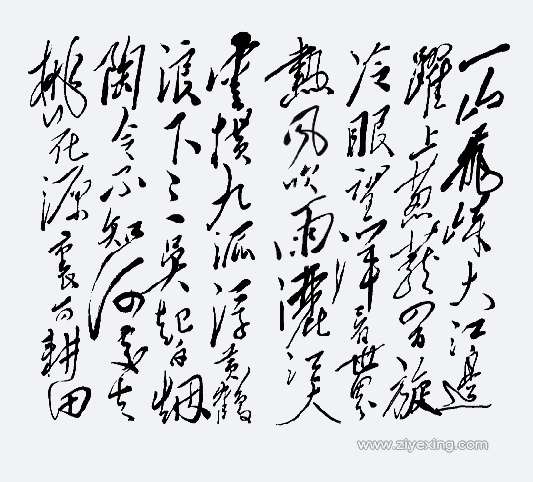 一山飛峙大江邊
躍上葱蘢四百旋
冷眼望洋看世界
熱風吹雨灑江天
雲橫九派浮黃鶴
浪下三吳起白烟
陶令不知何處去
桃花源裏可耕田
www.ziyexing.com